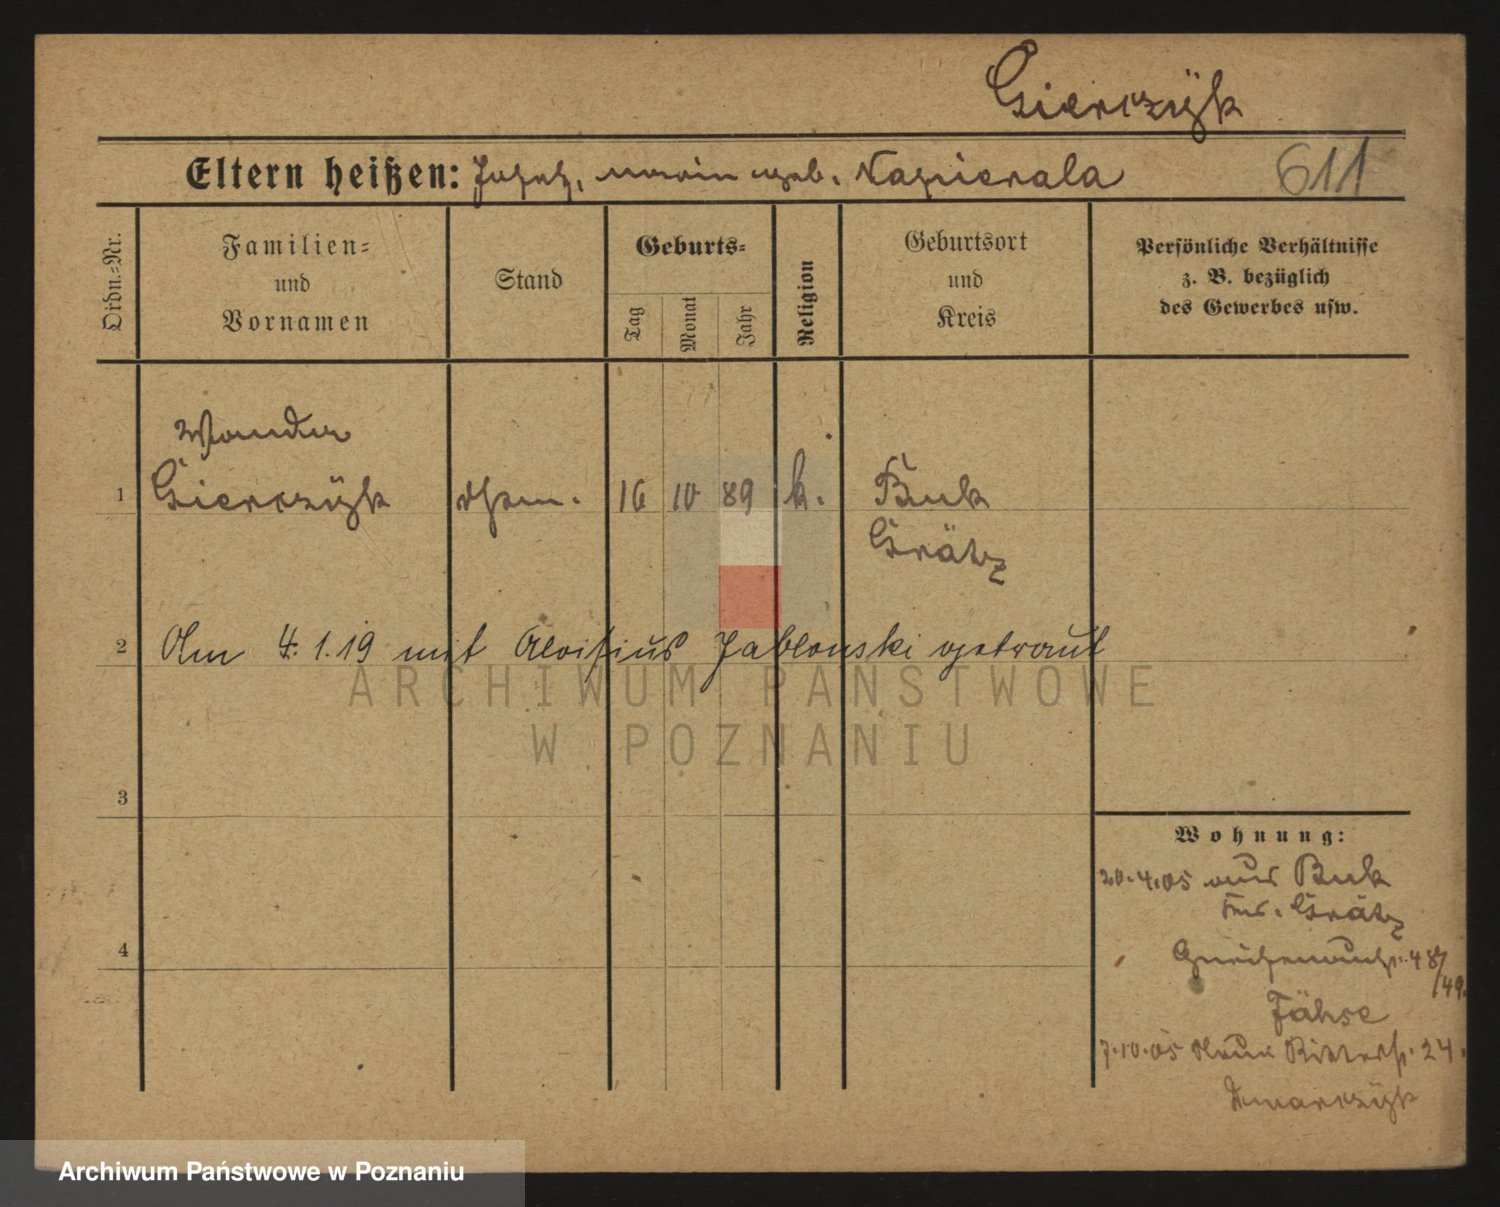 Gierczÿk
Eltern heißen: Josef, Marie geb. Napierala 611
Ordn.=Nr.
Familien=
und
Vornamen
Stand
Geburts=
Tag
Monat
Jahr
Religion
Geburtsort
und
Kreis
Persönliche Verhältnisse
z. B. bezüglich
des Gewerbes usw.
Wanda
1 Gierczÿk 16 10 89 k. Buk
Grätz
2 Am 4.1.19 mit Aloisius Jablonski getraut
ARCHIWUM PAŃSTWOWE
W POZNANIU
3
Wohnung:
20.4.05 aus Buk
Krs. Grätz
4
48/49.
Fähse
7.10.05 Neue Ritterstr. 24.
Archiwum Państwowe w Poznaniu